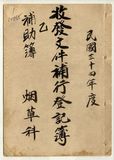 民國三十四年度
收發文件補行登記簿
乙
補助簿
烟草科